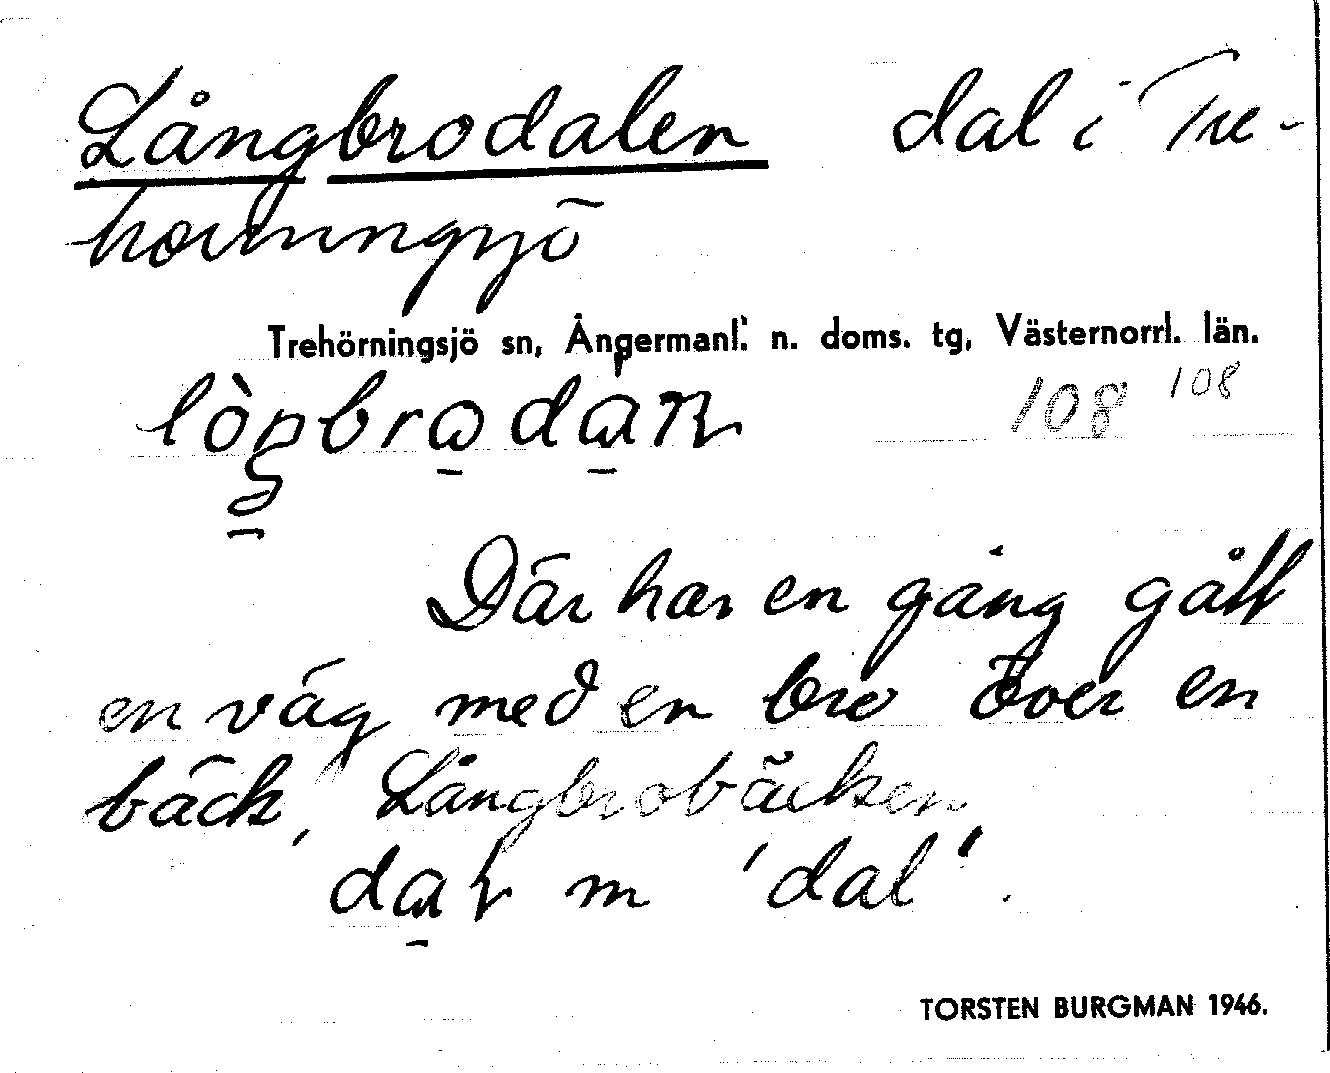 Långbrodalen dal i Tre-
hörningsjö
Trehörningsjö sn, Ångermanl. n. doms. tg, Västernorrl. län.
108 108
Där har en gång gått
en väg med en bro över en
bäck, Långbrobäcken
m 'dal'.
TORSTEN BURGMAN 1946.